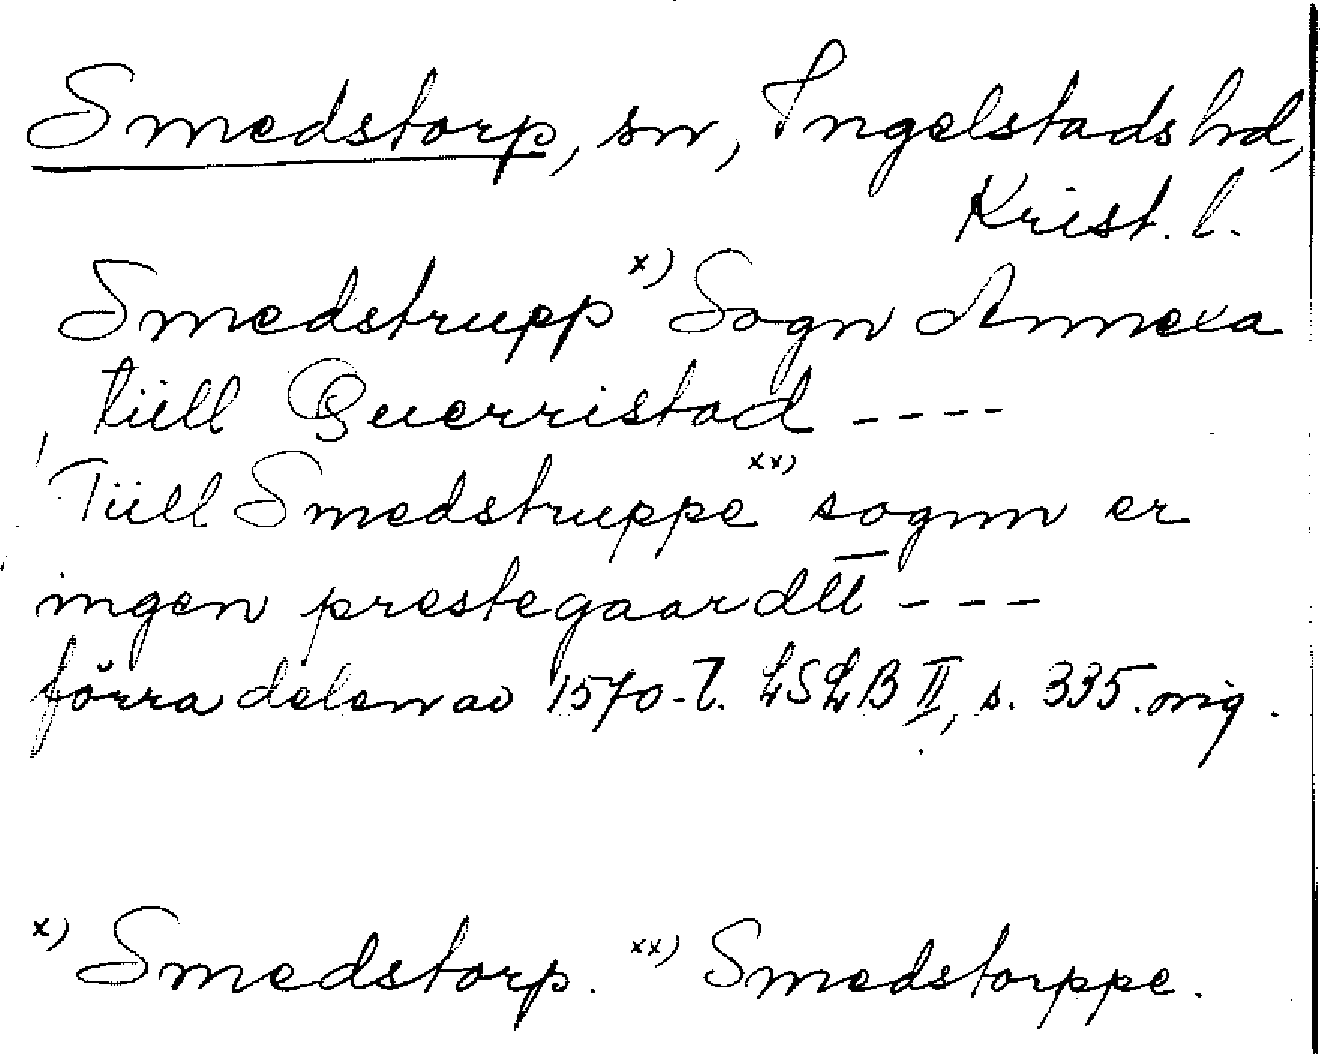 Smedstorp, sn, Ingelstads hd,
Krist. l.
Smedstrupp x) Sogn Annexa
tüll Querristad ----
Tüll Smedstruppe xx) sognn er
ingen prestegaardtt ---
förra delen av 1570-t. LSLB II, s. 335. orig.
x) Smedstorp. xx) Smedstorppe.